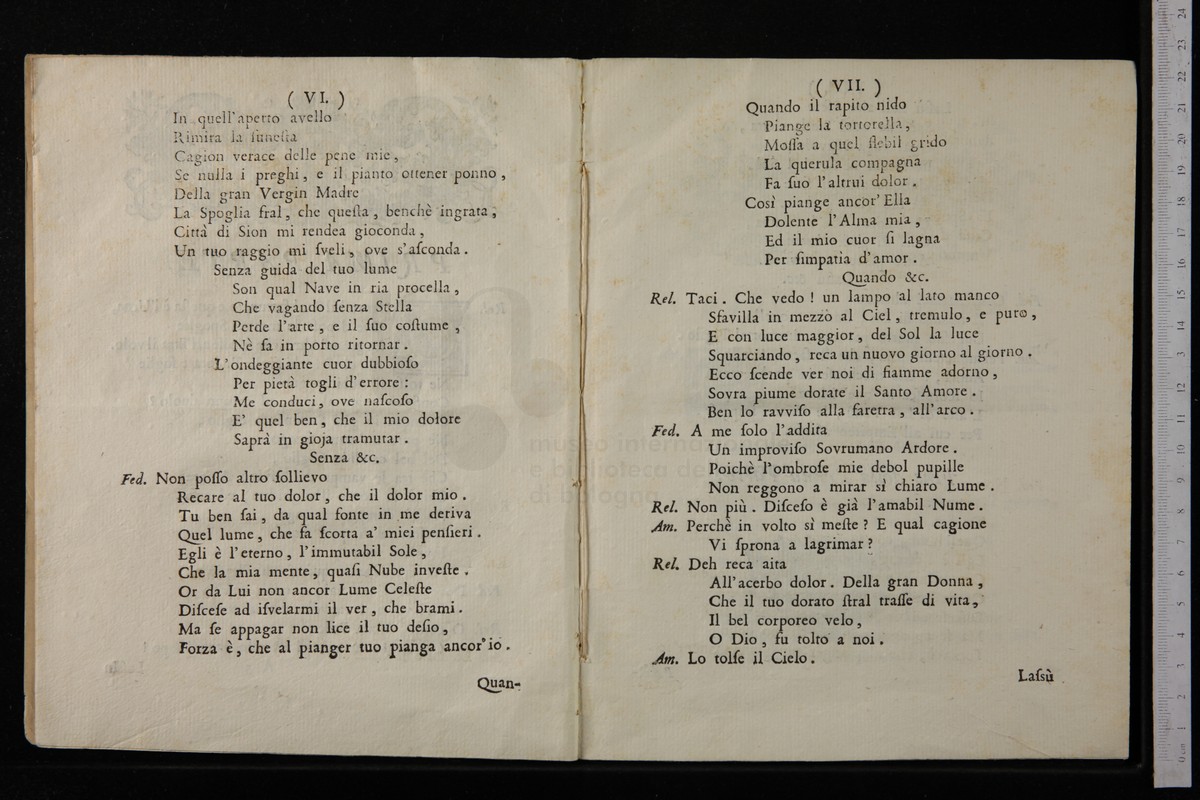 ( VI. )
In quell'aperto avello
Rimira la funeſta
Cagion verace delle pene mie,
Se nulla i preghi, e il pianto ottener ponno,
Della gran Vergin Madre
La Spoglia fral, che queſta, benchè ingrata,
Città di Sion mi rendea gioconda,
Un tuo raggio mi ſveli, ove s'aſconda.
Senza guida del tuo lume
Son qual Nave in ria procella,
Che vagando ſenza Stella
Perde l'arte, e il ſuo coſtume,
Nè ſa in porto ritornar.
L'ondeggiante cuor dubbioſo
Per pietà togli d'errore:
Me conduci, ove naſcoſo
E' quel ben, che il mio dolore
Saprà in gioja tramutar.
Senza &c.
Fed. Non poſſo altro ſollievo
Recare al tuo dolor, che il dolor mio.
Tu ben ſai, da qual fonte in me deriva
Quel lume, che fa ſcorta a' miei penſieri.
Egli è l'eterno, l'immutabil Sole,
Che la mia mente, quaſi Nube inveſte.
Or da Lui non ancor Lume Celeſte
Diſceſe ad iſvelarmi il ver, che brami.
Ma ſe appagar non lice il tuo deſio,
Forza è, che al pianger tuo pianga ancor'io.
Quan-
( VII. )
Quando il rapito nido
Piange la tortorella,
Moſſa a quel flebil grido
La querula compagna
Fa ſuo l'altrui dolor.
Così piange ancor' Ella
Dolente l'Alma mia,
Ed il mio cuor ſi lagna
Per ſimpatìa d'amor.
Quando &c.
Rel. Taci. Che vedo! un lampo al lato manco
Sfavilla in mezzo al Ciel, tremulo, e puro,
E con luce maggior, del Sol la luce
Squarciando, reca un nuovo giorno al giorno.
Ecco ſcende ver noi di fiamme adorno,
Sovra piume dorate il Santo Amore.
Ben lo ravviſo alla faretra, all'arco.
Fed. A me ſolo l'addita
Un improviſo Sovrumano Ardore.
Poichè l'ombroſe mie debol pupille
Non reggono a mirar sì chiaro Lume.
Rel. Non più. Diſceſo è già l'amabil Nume.
Am. Perchè in volto sì meſte? E qual cagione
Vi ſprona a lagrimar?
Rel. Deh reca aita
All'acerbo dolor. Della gran Donna,
Che il tuo dorato ſtral traſſe di vita,
Il bel corporeo velo,
O Dio, fu tolto a noi.
Am. Lo tolſe il Cielo.
Laſsù